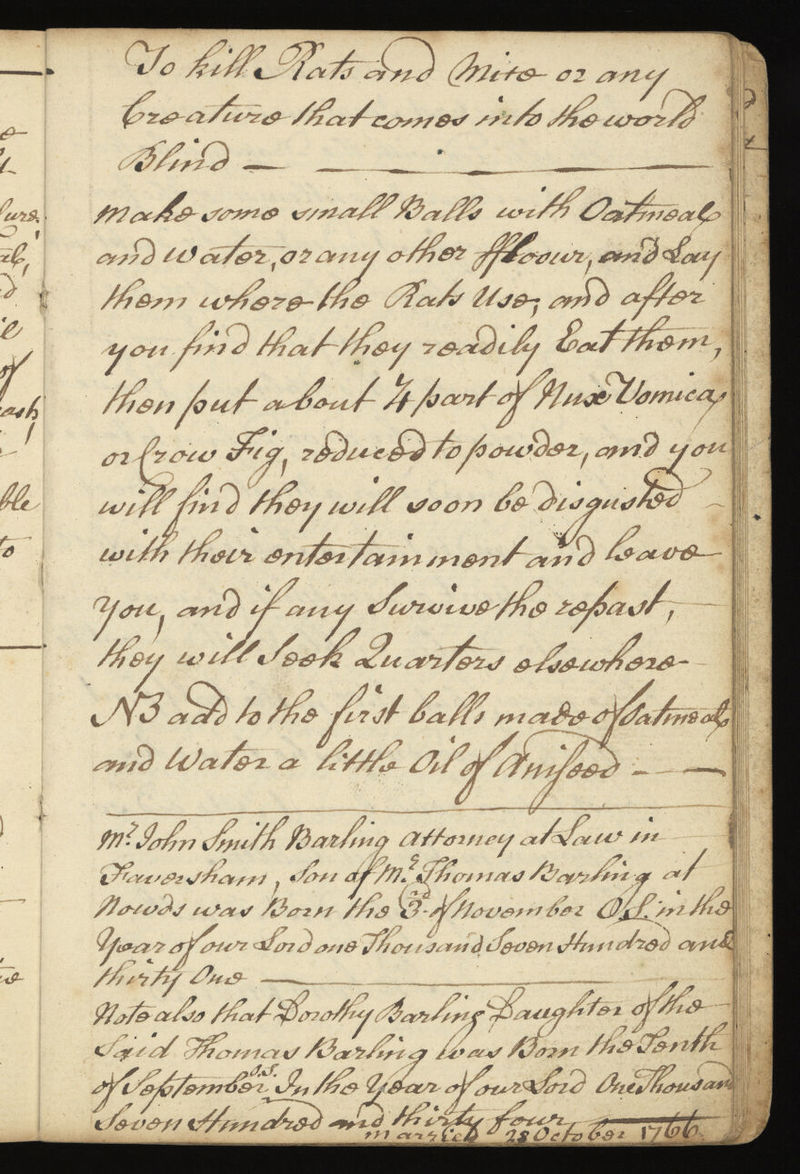 To kill Rats and Mice or any
Creature that comes into the world
Blind —
make some small Balls with Oatmeal
and water, or any other fflour, and Lay
them where the Rats Use, and after
you find that they readily Eat them,
then put about 1/4 part of Nux Vomica,
or Crow Fig, reduced to powder, and you
will find they will soon be disgusted
with their entertainment and leave
You, and if any Survive the repast,
they will Seek Quarters elsewhere
NB add to the first balls made of Oatmeal
and Water a little Oil of Aniseed — —
Mr. John Smith Barling Attorney at Law in
Faversham, Son of Mr. Thomas Barling at
Nowds was Born the 3rd of November O.S. in the
Year of our Lord one Thousand Seven Hundred and
thirty One —
Note also that Dorothy Barling Daughter of the
Said Thomas Barling was Born the Tenth
of September O.S. In the Year of our Lord One Thousand
Seven Hundred and thirty four
married 28 October 1766
ure
of
ble
to